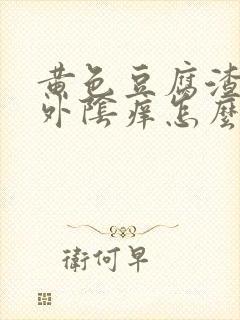 黄色豆腐渣
外陰痒怎麼
衛何早